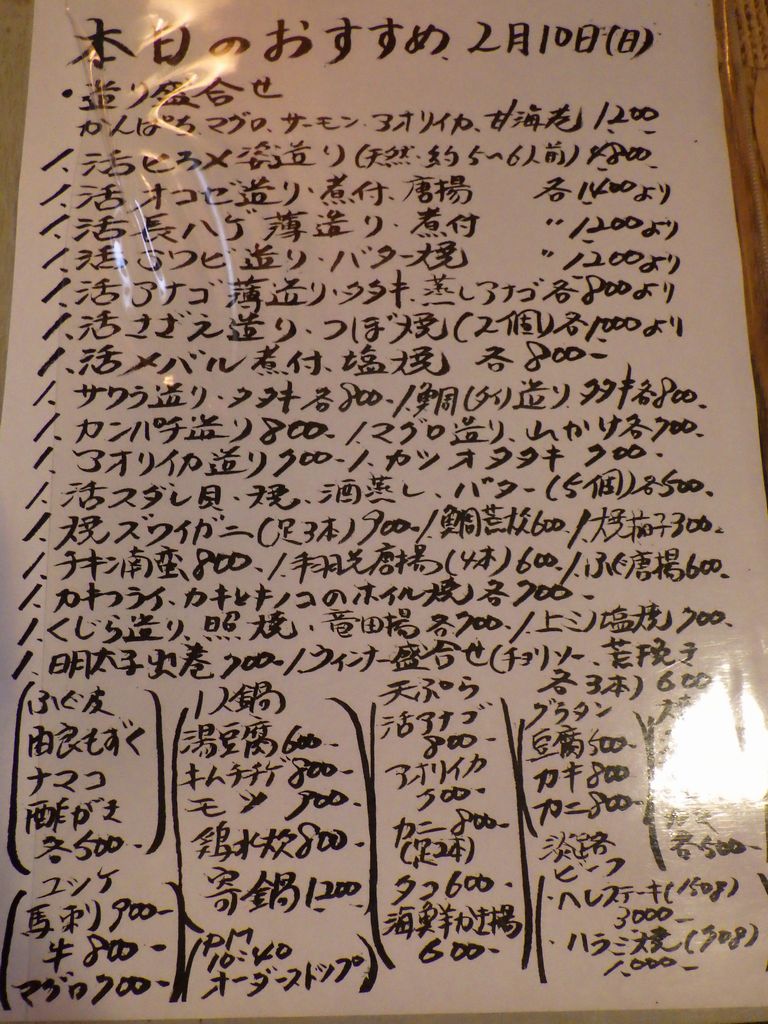 本日のおすすめ 2月10日(日)
・造り盛合せ
かんぱち、マグロ、サーモン、アオリイカ、甘海老 1200-
1、活ヒラメ姿造り(天然・約5〜6人前)4800-
1、活オコゼ造り・煮付、唐揚 各1400より
1、活長ハゲ薄造り・煮付 〃1200より
1、活アワビ造り・バター焼 〃1200より
1、活アナゴ薄造り・タタキ、蒸しアナゴ各800より
1、活さざえ造り・つぼ焼(2個)各1000より
1、活メバル煮付、塩焼 各800-
1、サワラ造り・タタキ各800-1、鯛(タイ)造り、タタキ各800-
1、カンパチ造り800-1、マグロ造り、山かけ各700-
1、アオリイカ造り700-1、カツオタタキ 700-
1、活スダレ貝・焼、酒蒸し、バター(5個)各500-
1、焼ズワイガニ(足3本)900-1、鯛荒炊600-1、焼茄子300-
1、チキン南蛮800-1、手羽先唐揚(4本)600-1、ふぐ唐揚600-
1、カキフライ、カキとキノコのホイル焼 各700-
1、くじら造り、照焼、竜田揚各700-1、上ミノ塩焼700-
1、明太子出巻700-1、ウィンナー盛合せ(チョリソー、荒挽き
各3本)600
ふぐ皮
由良もずく
ナマコ
酢がき
各500-
ユッケ
馬刺900-
牛800-
マグロ700-
1人鍋
湯豆腐600-
キムチチゲ800-
モツ 900-
鶏水炊800-
寄鍋1200
PM
10:40
オーダーストップ
天ぷら
活アナゴ
800-
アオリイカ
500-
カニ800-
(足2本)
タコ600-
海鮮かき揚
600-
グラタン
豆腐500-
カキ800
カニ800-
各500-
淡路
ビーフ
・ヘレステーキ(150g)
3000-
・ハラミ焼(90g)
1,000-